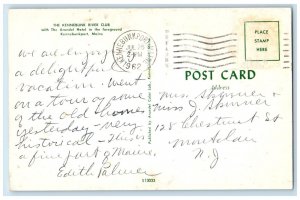 THE KENNEBUNK RIVER CLUB
with The Arundel Hotel in the foreground
Kennebunkport, Maine
KENNEBUNKPORT
JUL 25
PM
1962
PLACE
STAMP
HERE
POST CARD
Address
we are enjoying
a delightful
vacation. Went
on a tour of some
of the old homes
yesterday - very
historical - This is
a fine part of Maine.
Edith Palmer
Miss Skinner and
Miss J Skinner
128 Chestnut St
Montclair
N. J.